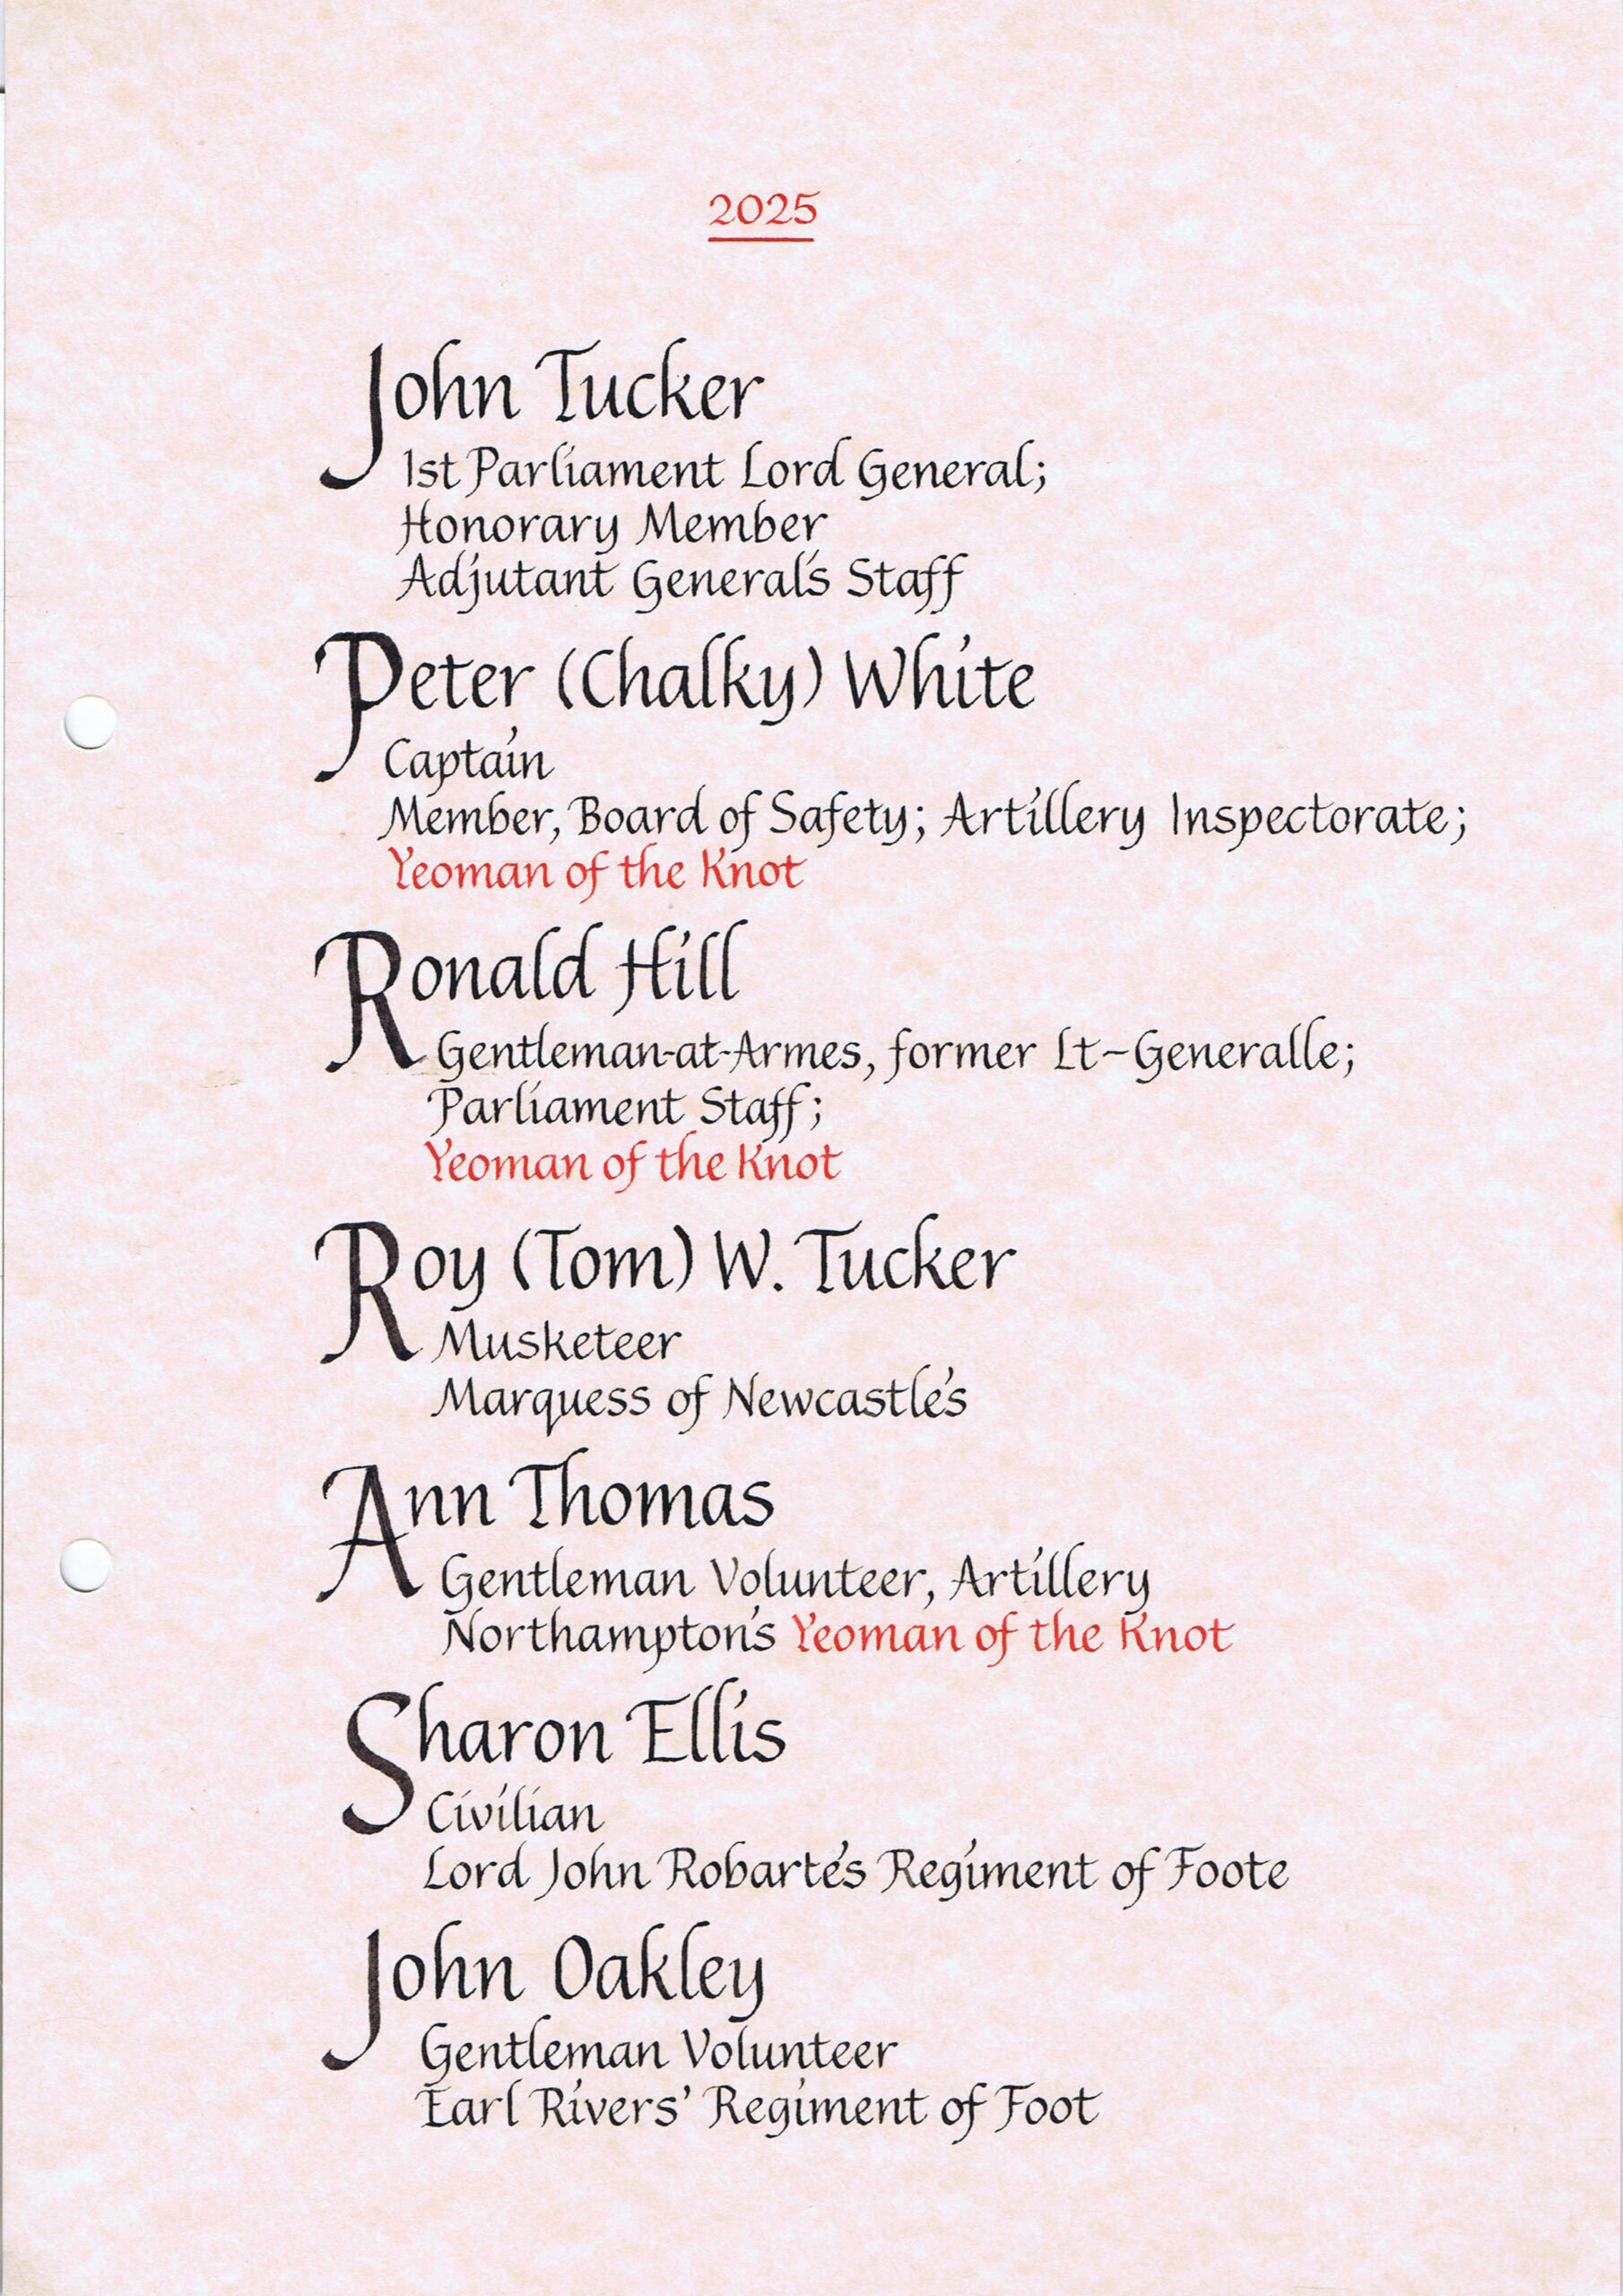 2025
John Tucker
1st Parliament Lord General;
Honorary Member
Adjutant General's Staff
Peter (Chalky) White
Captain
Member, Board of Safety; Artillery Inspectorate;
Yeoman of the Knot
Ronald Hill
Gentleman-at-Armes, former Lt-Generalle;
Parliament Staff;
Yeoman of the Knot
Roy (Tom) W. Tucker
Musketeer
Marquess of Newcastle's
Ann Thomas
Gentleman Volunteer, Artillery
Northampton's Yeoman of the Knot
Sharon Ellis
Civilian
Lord John Robarte's Regiment of Foote
John Oakley
Gentleman Volunteer
Earl Rivers' Regiment of Foot